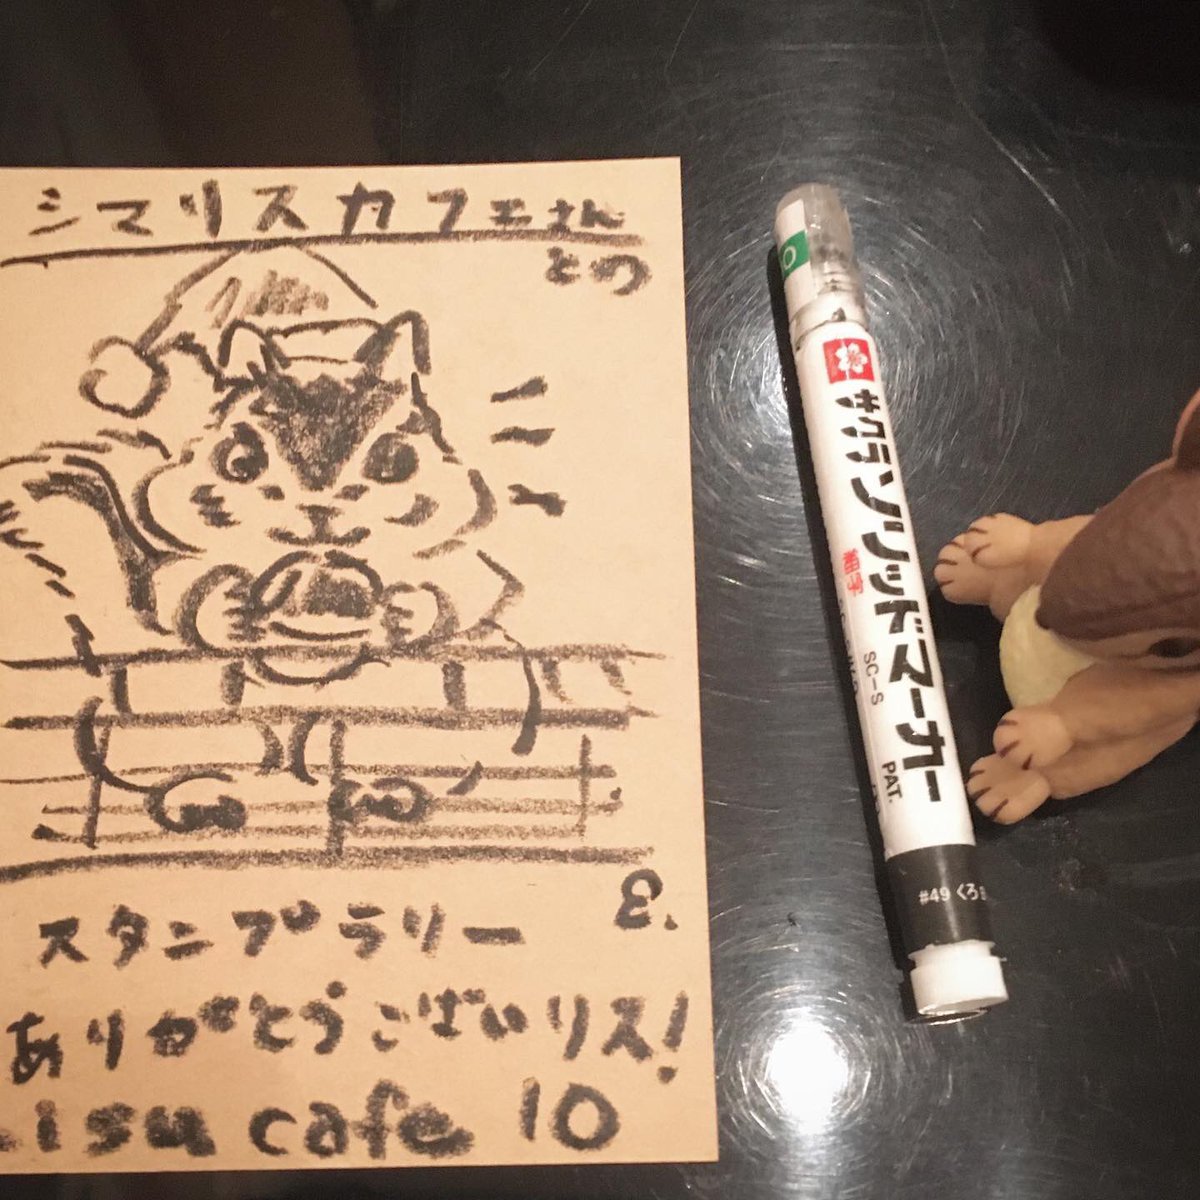 シマリスカフェさん
との
スタンプラリー
ありがとうございリス!
isu cafe 10
サクラソリッドマーカー
細字
SC-S
PAT.
#49 くろ